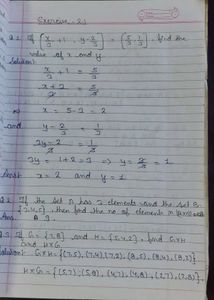 Exercise - 2.1
Q.1 If (x/3 + 1, y - 2/3) = (5/3, 1/3), find the
value of x and y
Solution)
x/3 + 1 = 5/3
x + 3 / 3 = 5/3
⇒ x = 5 - 3 = 2
and y - 2/3 = 1/3
3y - 2 / 3 = 1/3
3y = 1 + 2 = 3 ⇒ y = 3/3 = 1
x = 2 and y = 1
If the set A has 3 elements and the set B =
{3,4,5}, then find the no of elements in (A×B)
Ans 9.
Q.3 If G = {7,8} and H = {5,4,2}, find G×H
and H×G
Solution: G×H = {(7,5), (7,4), (7,2), (8,5), (8,4), (8,2)}
H×G = {(5,7), (5,8), (4,7), (4,8), (2,7), (2,8)}